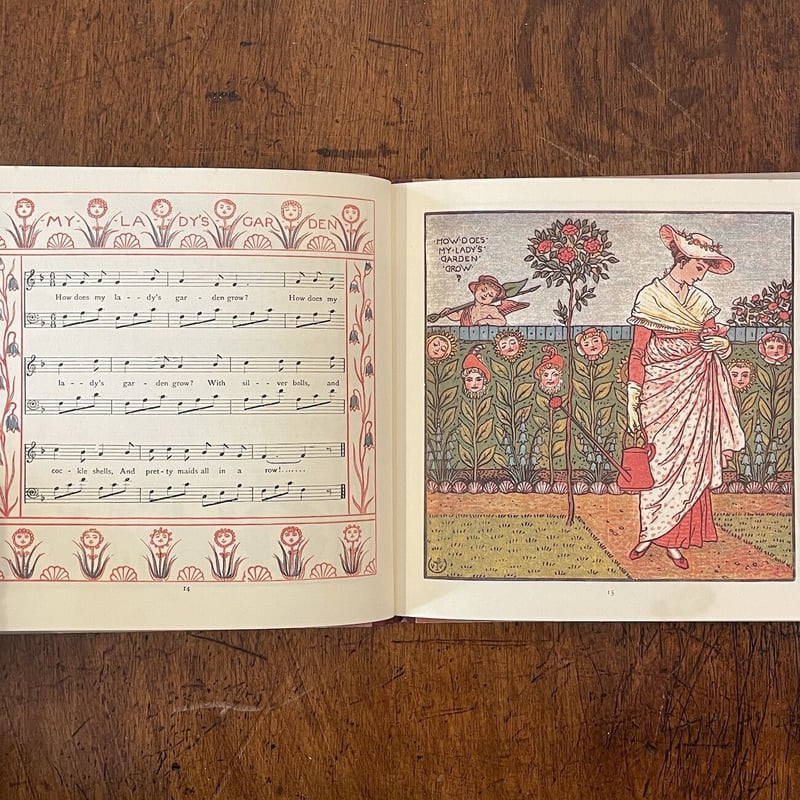 MY·LA-DY'S GAR-DEN·
How does my la - - dy's gar - - den grow? How does my
la - - dy's gar - - den grow? With sil - - ver bells, and
coc - kle shells, And pret - ty maids all in a row!......
14
·HOW·DOES·
MY·LADY'S·
GARDEN·
GROW·
?